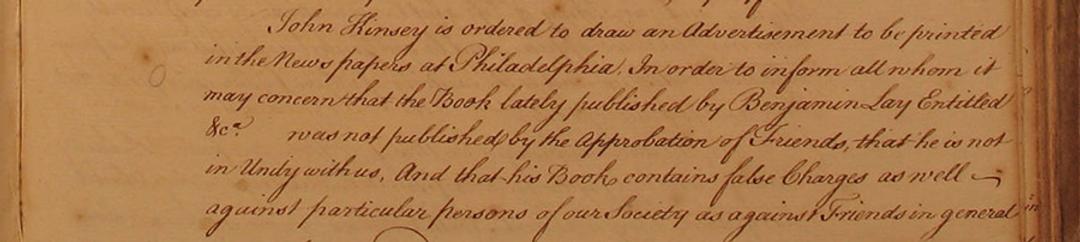 John Kinsey is ordered to draw an Advertisement to be printed
in the News papers at Philadelphia. In order to inform all whom it
may concern that the Book lately published by Benjamin Lay Entitled
&c.a was not published by the Approbation of Friends, that he is not
in Undy with us, And that his Book contains false Charges as well
against particular persons of our Society as against Friends in general